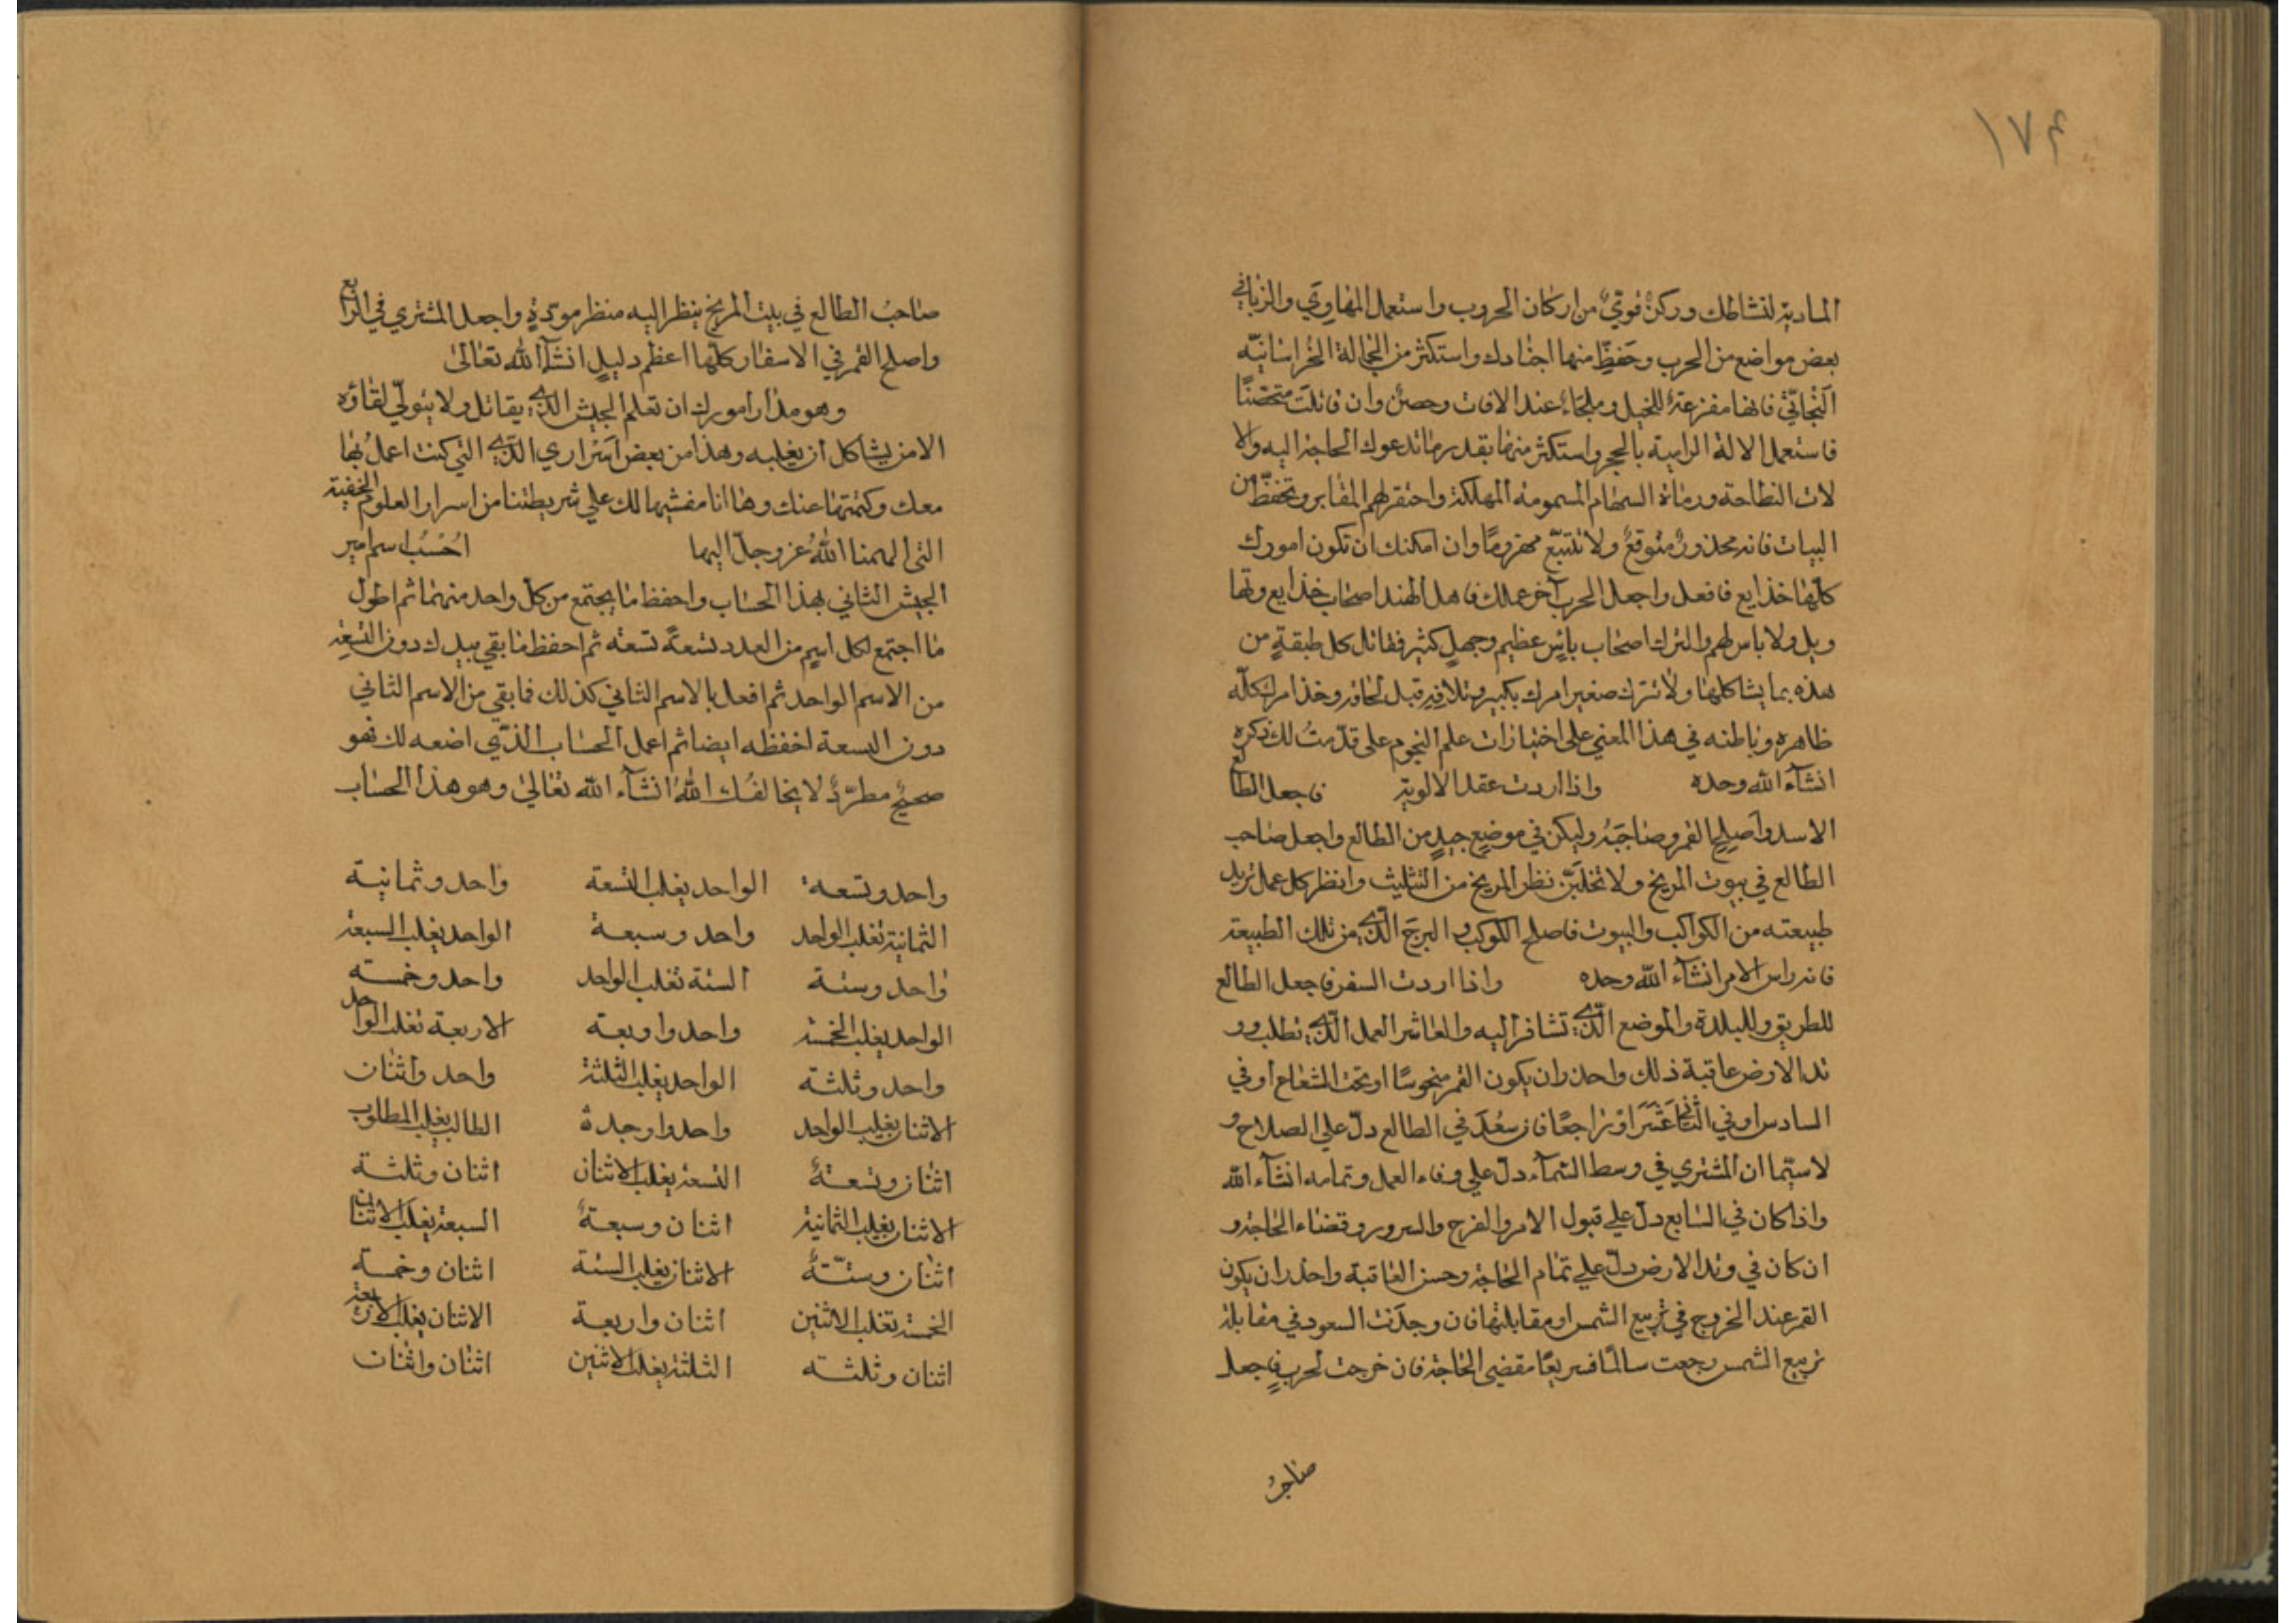 ١٧٤
المادية لنشاطك وركنٌ قويٌّ من اركان الحروب واستعمل المهاوي والزباني
بعض مواضع من الحرب وحفظٍ منها اجنادك واستكثر من العجالة الخراسانيّه
فانها مفزعة للخيل وملجاء عند الافات وحصنٌ وان قاتلت متحصّنًا
فاستعمل الالة الرامية بالحجر واستكثر منها بقدر ما تدعوك الحاجة اليه والا
لات النطاحة ورماة السهام المسمومة المهلكة واحتقر لهم المقابر وتحفظ من
البيات فانه محذورٌ متوقعٌ ولا تتبّع مهزومًا وان امكنك ان تكون امورك
كلّها خدايع فافعل واجعل الحرب آخر عملك فاهل الهند اصحاب خدايع وتها
ويل ولا باس لهم والترك اصحاب بأسٍ عظيم وجهلٍ كثير فقاتل كل طبقةٍ من
هذه بما يشاكلها ولا تترك صغير امرك بكبير وتلافيه قبل لحاقه وخذ امرك كلّه
ظاهره وباطنه في هذا المعني على اختيارات علم النجوم على قدّمتُ لك ذكره
انشآء الله وحده واذا اردت عقد الالوية فاجعل الطالع
الاسد واصلِح القمر وصاحبَهُ وليكن في موضعٍ جيدٍ من الطالع واجعل صاحب
الطالع في بيوت المريخ ولا تخلّينّ نظر المريخ من التثليث وانظر كل عمل تريد
طبيعته من الكواكب والبيوت فاصلح الكوكب والبرجَ الذّي من تلك الطبيعة
فانه راس الامر انشآء الله وحده واذا اردت السفر فاجعل الطالع
للطريق وللبلدة والموضع الذّي تسافر اليه والعاشر العمل الذّي تطلب وو
تد الارض عاقبة ذلك واحذر ان يكون القمر منحوسًا او تحت الشعاع او في
السادس او في الثاني عَشَرَ او راجعًا فان سعُدَ في الطالع دلّ علي الصلاح و
لاسيّما ان المشتري في وسط السّمآء دلّ علي وفاء العمل وتمامه انشآء الله
واذا كان في السّابع دلّ علي قبول الامر والفرح والسرور وقضاء الحاجة و
ان كان في وتد الارض دلّ علي تمام الحاجة وحسن العاقبة واحذر ان يكون
القمر عند الخروج في تربيع الشمس او مقابلتها فان وجدَت السعود في مقابلة
تربيع الشمس رجعت سالمًا سريعًا مقضي الحاجة فان خرجت لحربٍ فاجعل
صاحبُ
صاحبُ الطالع في بيت المريخ ينظر اليه منظر مودّةٍ واجعل المشتري في الرابع
واصلح القمر في الاسفار كلّها اعظم دليلٍ انشآء الله تعالىٰ
وهو مدار امورك ان تعلم الجيش الذّي يقاتل ولا يتولّي لقاؤه
الا من يشاكل ان يغلبه وهذا من بعض اسراري الذّي التي كنت اعملُ بها
معك وكتمتها عنك وها انا مفشيها لك علي شريطتنا من اسرار العلوم الخفية
التى الهمنا اللهُ عز وجلّ اليها احْسُب اسم امير
الجيش الثاني بهذا الحساب واحفظ ما يجتمع من كلّ واحد منهما ثم اطول
ما اجتمع لكل اسمٍ من العدد تسعةً تسعه ثم احفظ ما بقي بيدك دون التسعة
من الاسم الواحد ثم افعل بالاسم الثاني كذلك فما بقي من الاسم الثاني
دون التسعة احفظه ايضا ثم اعمل الحساب الذّي اضعه لك فهو
صحيحٌ مطرّدٌ لا يخالفُك اللهُ انشآء الله تعالىٰ وهو هذا الحساب
واحد وتسعة الواحد يغلب التسعة واحد وثمانية
الثمانية تغلب الواحد واحد وسبعة الواحد يغلب السبعة
واحد وستة الستة تغلب الواحد واحد وخمسته
الواحد يغلب الخمسة واحد واربعة الاربعة تغلب الواحد
واحد وثلثة الواحد يغلب الثلثة واحد واثنان
الاثنان يغلب الواحد واحد وواحدة الطالب يغلب المطلوب
اثنان وتسعةٌ التسعة يغلب الاثنان اثنان وثلثة
الاثنان يغلب الثمانية اثنان وسبعةٌ السبعة يغلب الاثنان
اثنان وستّةٌ الاثنان يغلب الستة اثنان وخمسة
الخمسة تغلب الاثنين اثنان واربعة الاثنان يغلب الاربعة
اثنان وثلثته الثلثة يغلب الاثنين اثنان واثنان